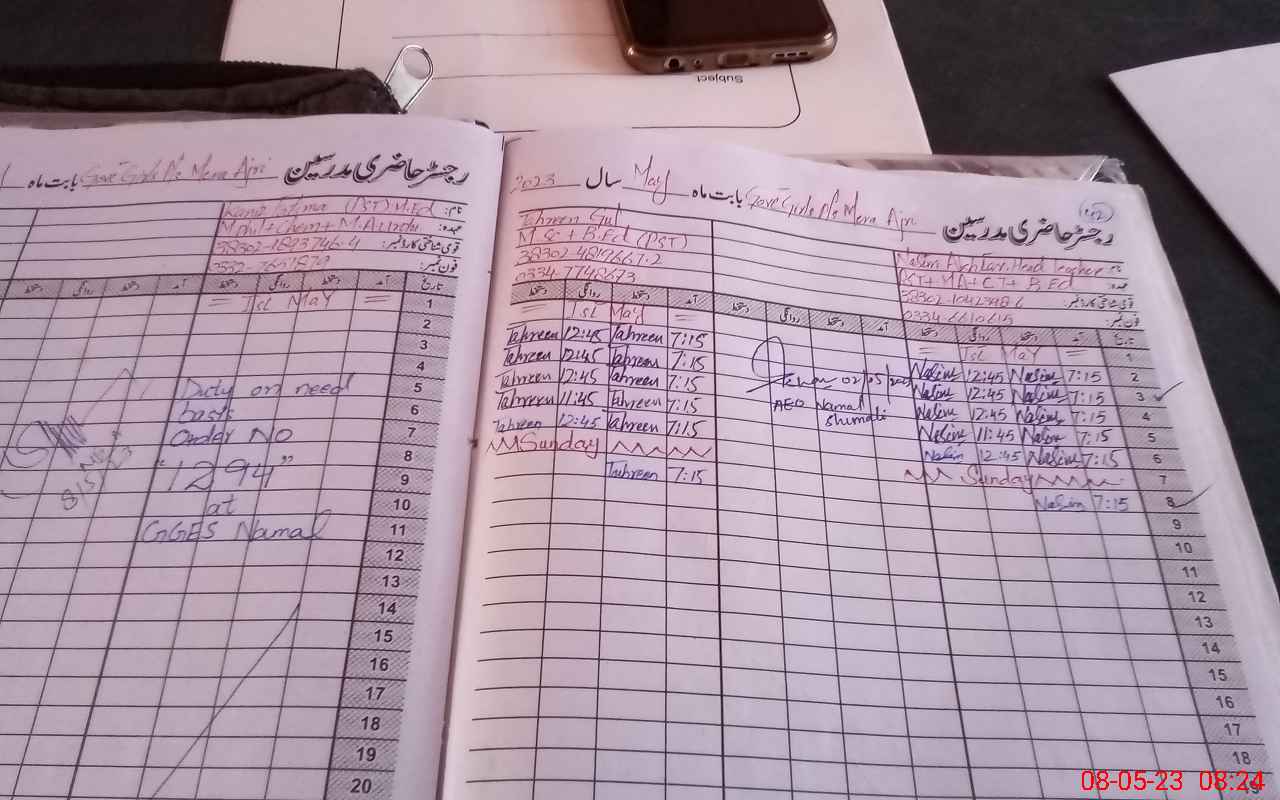 Subject
رجسٹر حاضری مدرسین Govt Girls P/s Mera Ajri بابت ماہ
نام: Kaniz Fatima (PST) M.Ed
عہدہ: M.Phil + Chem + M.A Urdu
قومی شناختی کارڈ نمبر:
فون نمبر:
تاریخ آمد دستخط روانگی دستخط آمد دستخط روانگی دستخط
1 = Ist May =
2
3
4
5 Duty on need
6 basis
7 Order No
8
9 "1294"
10 at
11 GGES Namal
12
13
14
15
16
17
18
19
20
8/5/23
142
رجسٹر حاضری مدرسین Govt Girls P/s Mera Ajri بابت ماہ May سال 2023
نام: Nasim Akhtar Head Teacher
عہدہ: PST + MA + CT + B.Ed
قومی شناختی کارڈ نمبر:
فون نمبر: 0334-6610615
Tahreen Gul
M.Sc + B.Ed (PST)
38302-4819667-2
0334-7748673
تاریخ آمد دستخط روانگی دستخط آمد دستخط روانگی دستخط آمد دستخط روانگی دستخط
1 = Ist May = = Ist May =
2 7:15 Nasim 12:45 Nasim 7:15 Tahreen 12:45 Tahreen
3 7:15 Nasim 12:45 Nasim 7:15 Tahreen 12:45 Tahreen
4 7:15 Nasim 12:45 Nasim 7:15 Tahreen 12:45 Tahreen
5 7:15 Nasim 11:45 Nasim 7:15 Tahreen 11:45 Tahreen
6 7:15 Nasim 12:45 Nasim 7:15 Tahreen 12:45 Tahreen
7 Sunday Sunday
8 7:15 Nasim 7:15 Tahreen
9
10
11
12
13
14
15
16
17
18
19
AEO Namal
Shumali
08-05-23 08:24